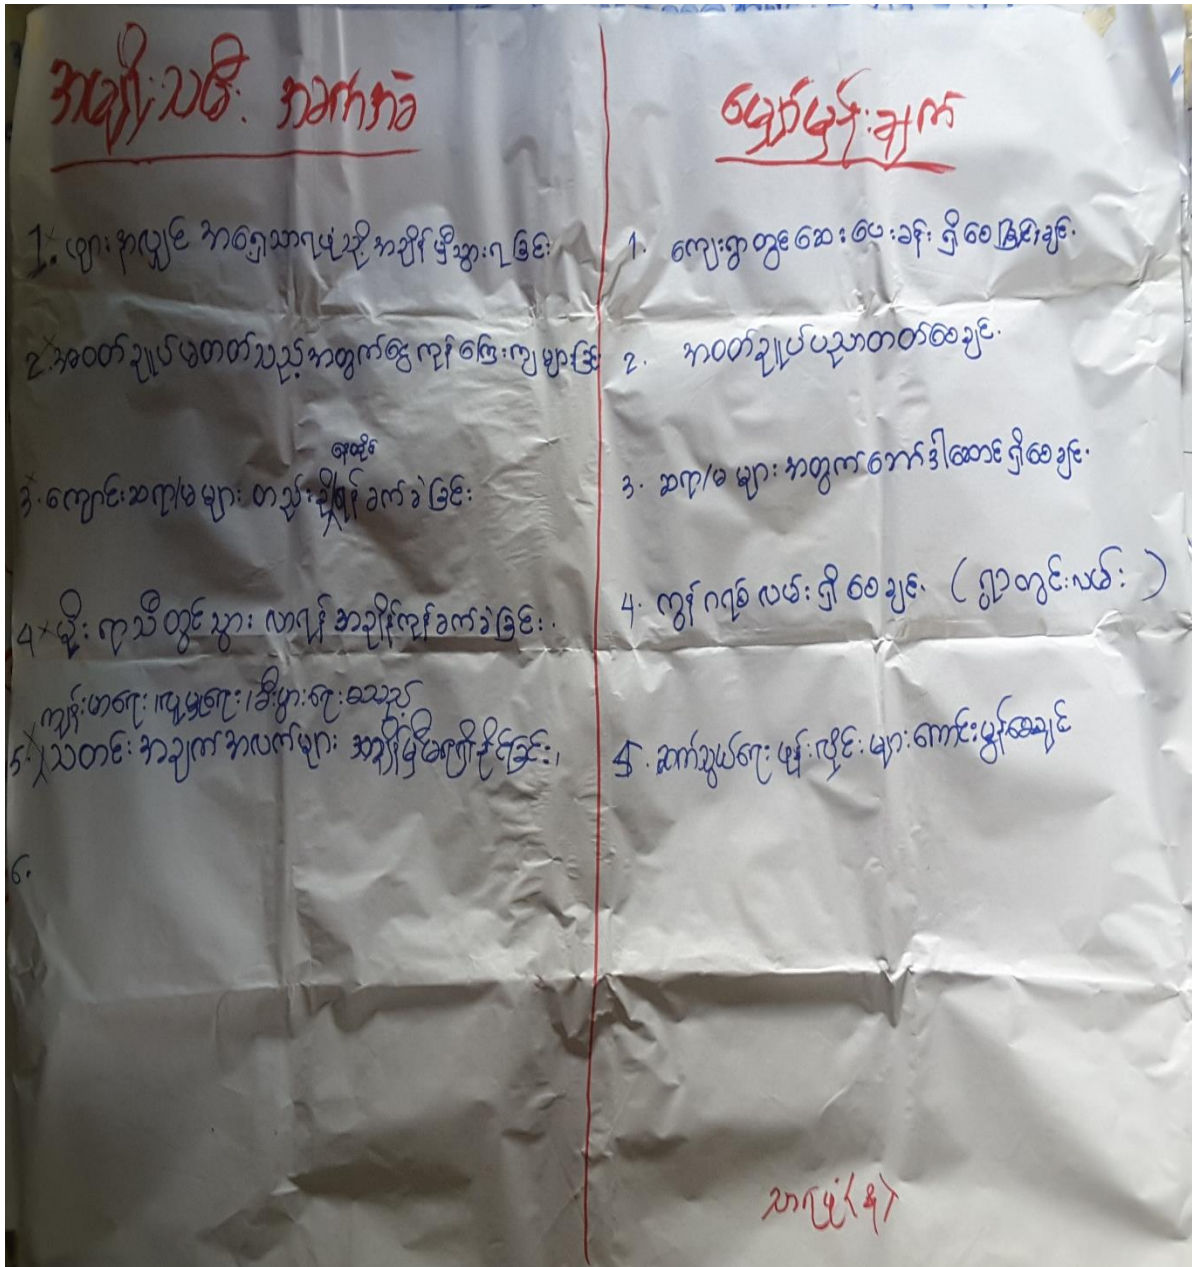 အမျိုးသမီး အခက်အခဲ
မျှော်မှန်းချက်
1. ဖျားနာလျှင် အရှေ့သာရပုံသို့ အချိန်မှီသွားရခြင်း
2. အဝတ်ချုပ်မတတ်သည့်အတွက်ငွေကုန်ကြေးကျများခြင်း
နေထိုင်
3. ကျောင်းဆရာ/မများ တည်းခိုရန်ခက်ခဲခြင်း
4 မိုးရာသီတွင်သွားလာရန် အချိန်ကုန်ခက်ခဲခြင်း.
ကျန်းမာရေး၊လူမှုရေး၊စီးပွားရေးစသည့်
5. သတင်းအချက်အလက်များ အချိန်မှီမရရှိနိုင်ခြင်း၊
6.
1. ကျေးရွာတွင်ဆေးပေးခန်းရှိစေခြင်းချင်.
2. အဝတ်ချုပ်ပညာတတ်စေချင်.
3. ဆရာ/မများအတွက်ဘော်ဒါဆောင်ရှိစေချင်.
4. ကွန်ကရစ်လမ်းရှိစေချင်. (ရွာတွင်းလမ်း)
5. ဆက်သွယ်ရေးဖုန်းလိုင်းများကောင်းမွန်စေချင်
သာရပုံ(စ)